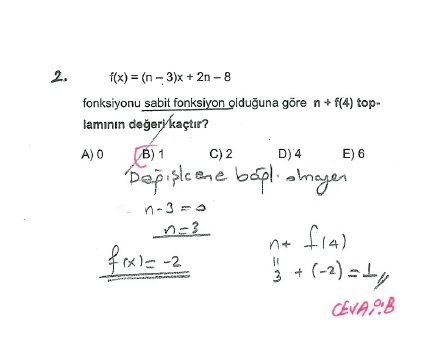 2. f(x) = (n – 3)x + 2n – 8
fonksiyonu sabit fonksiyon olduğuna göre n + f(4) top-
lamının değeri kaçtır?
A) 0 B) 1 C) 2 D) 4 E) 6
Değişkene bağlı olmayan
n-3=0
n=3
f(x)=-2
n+ f(4)
3 + (-2)=1
CEVAP:B